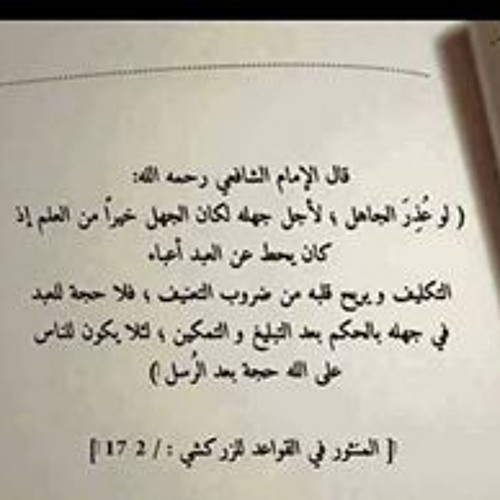 قال الإمام الشافعي رحمه الله:
( لو عُذِرَ الجاهل ؛ لأجل جهله لكان الجهل خيراً من العلم إذ
كان يحط عن العبد أعباء
التكليف و يريح قلبه من ضروب التعنيف ؛ فلا حجة للعبد
في جهله بالحكم بعد التبليغ و التمكين ؛ لئلا يكون للناس
على الله حجة بعد الرُسل )
[ المنثور في القواعد للزركشي : / 2 17 ]